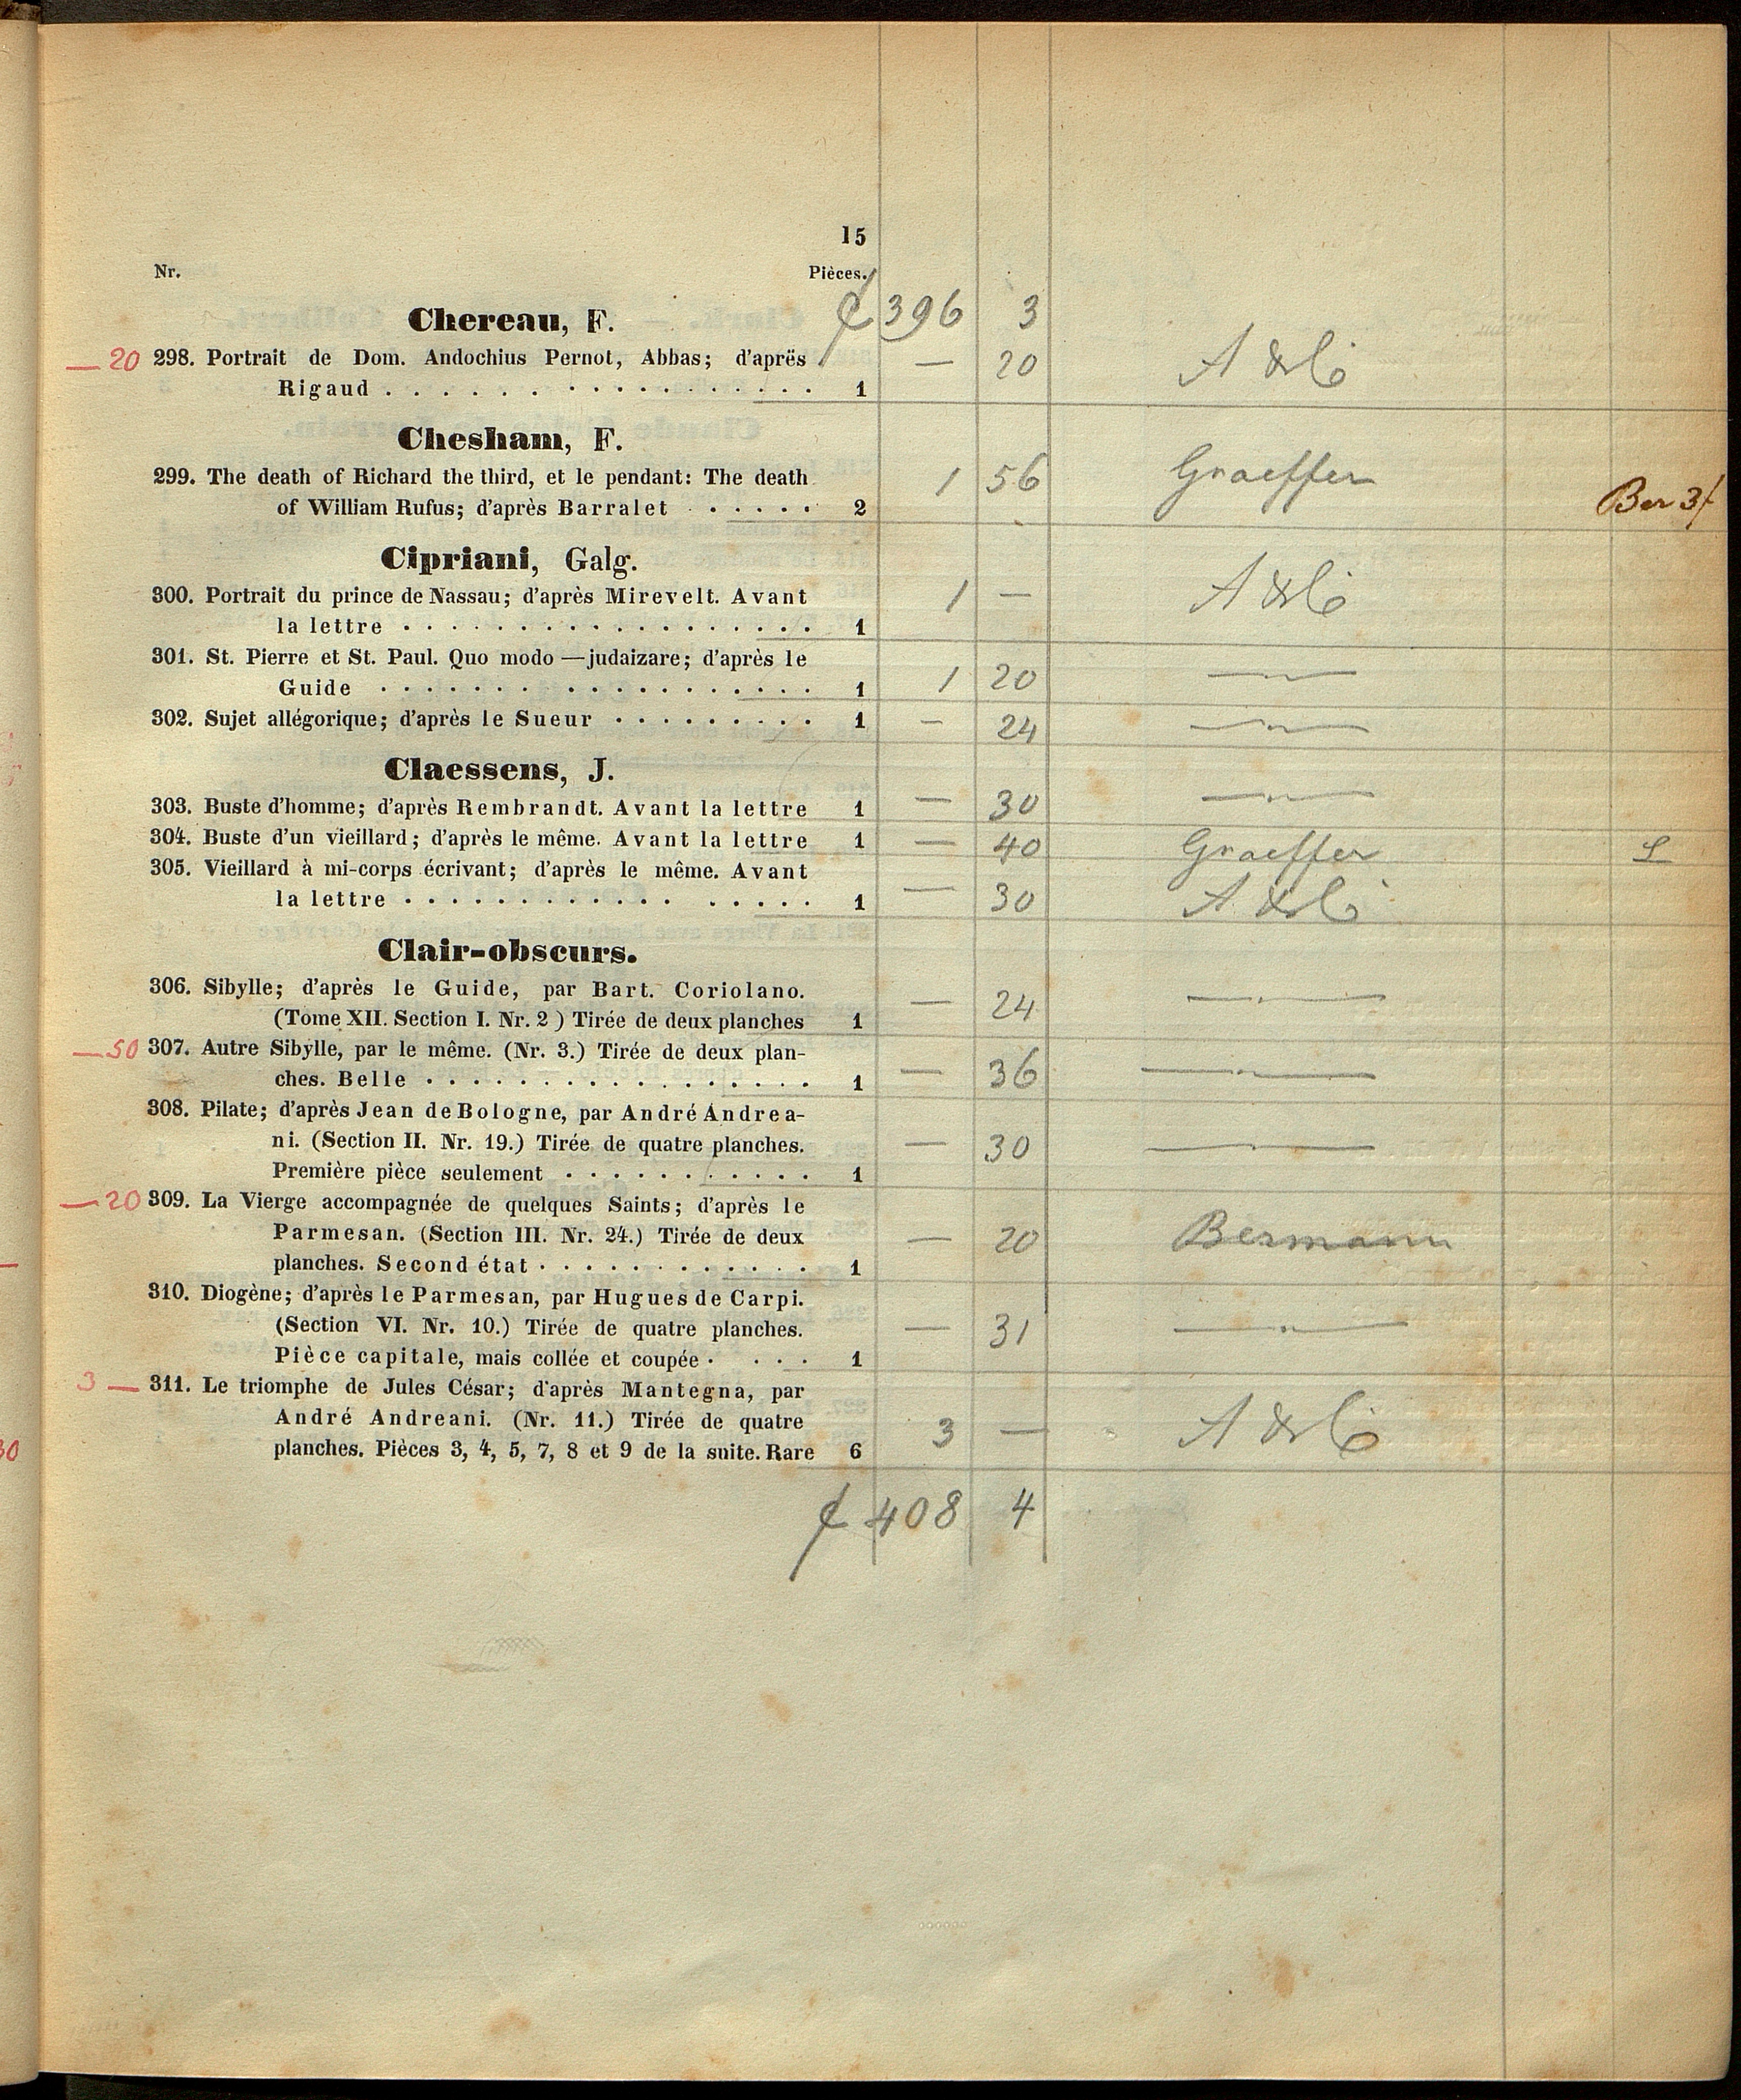 15
Nr. Pièces.
Chereau, F. 396 3
— 20 298. Portrait de Dom. Andochius Pernot, Abbas; d'aprës — 20 A & Co
Rigaud . . . . . . . . . . . . . . . . . . 1
Chesham, F.
299. The death of Richard the third, et le pendant: The death 1 56 Graeffer
of William Rufus; d'après Barralet . . . . . . 2 Ber 3f
Cipriani, Galg.
300. Portrait du prince de Nassau; d'après Mirevelt. Avant 1 — A & Co
la lettre . . . . . . . . . . . . . . . . . . 1
301. St. Pierre et St. Paul. Quo modo — judaizare; d'après le 1 20 —"—
Guide . . . . . . . . . . . . . . . . . . 1
302. Sujet allégorique; d'après le Sueur . . . . . . . . . 1 — 24 —"—
Claessens, J.
303. Buste d'homme; d'après Rembrandt. Avant la lettre 1 — 30 —"—
304. Buste d'un vieillard; d'après le même. Avant la lettre 1 — 40 Graeffer
305. Vieillard à mi-corps écrivant; d'après le même. Avant
la lettre . . . . . . . . . . . . . . . . . 1 — 30 A & Co
Clair-obscurs.
306. Sibylle; d'après le Guide, par Bart. Coriolano. — 24 —"—
(Tome XII. Section I. Nr. 2 ) Tirée de deux planches 1
— 50 307. Autre Sibylle, par le même. (Nr. 3.) Tirée de deux plan-
ches. Belle . . . . . . . . . . . . . . . . . 1 — 36 —"—
308. Pilate; d'après Jean de Bologne, par André Andrea-
ni. (Section II. Nr. 19.) Tirée de quatre planches. — 30 —"—
Première pièce seulement . . . . . . . . . . . 1
— 20 309. La Vierge accompagnée de quelques Saints; d'après le
Parmesan. (Section III. Nr. 24.) Tirée de deux — 20 Bermann
planches. Second état . . . . . . . . . . . . 1
310. Diogène; d'après le Parmesan, par Hugues de Carpi.
(Section VI. Nr. 10.) Tirée de quatre planches. — 31 —"—
Pièce capitale, mais collée et coupée . . . . 1
3 — 311. Le triomphe de Jules César; d'après Mantegna, par
André Andreani. (Nr. 11.) Tirée de quatre 3 — A & Co
planches. Pièces 3, 4, 5, 7, 8 et 9 de la suite. Rare 6
408 4